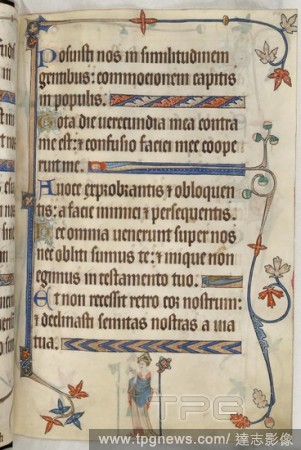 Posuisti nos in similitudinem
gentibus: commocionem capitis
in populis.
Tota die verecundia mea contra
me est: & confusio faciei mee coope
runt me.
A voce exprobrantis & obloquen
tis: a facie inimici & persequentis.
Hec omnia venerunt super nos
nec obliti sumus te: & inique non
egimus in testamento tuo.
Et non recessit retro cor nostrum:
& declinasti semitas nostras a via
tua:
TPG
www.tpgnews.com/達志影像